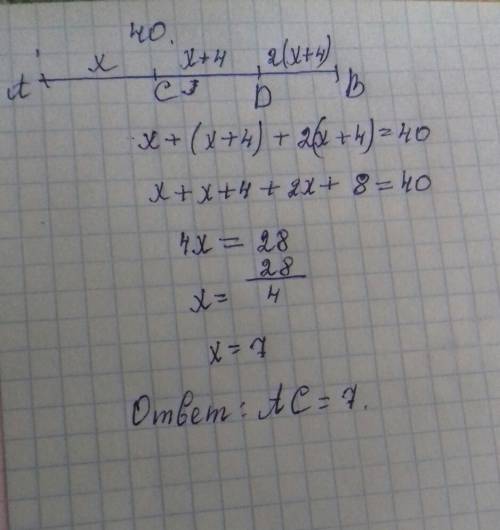 40.
x x+4 2(x+4)
A C D B
x + (x+4) + 2(x+4) = 40
x + x + 4 + 2x + 8 = 40
4x = 28
x = 28/4
x = 7
Ответ: AC = 7.